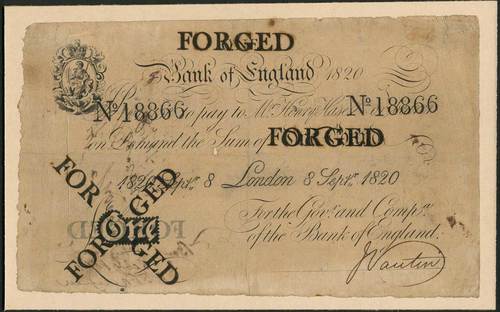 FORGED
Bank of England 1820
Nº 18866 to pay to Mr. Henry Hase Nº 18866
on Demand the Sum of FORGED
1820 Septr. 8 London 8 Septr. 1820
FORGED
For the Govr. and Compa.
of the Bank of England.
One
FORGED